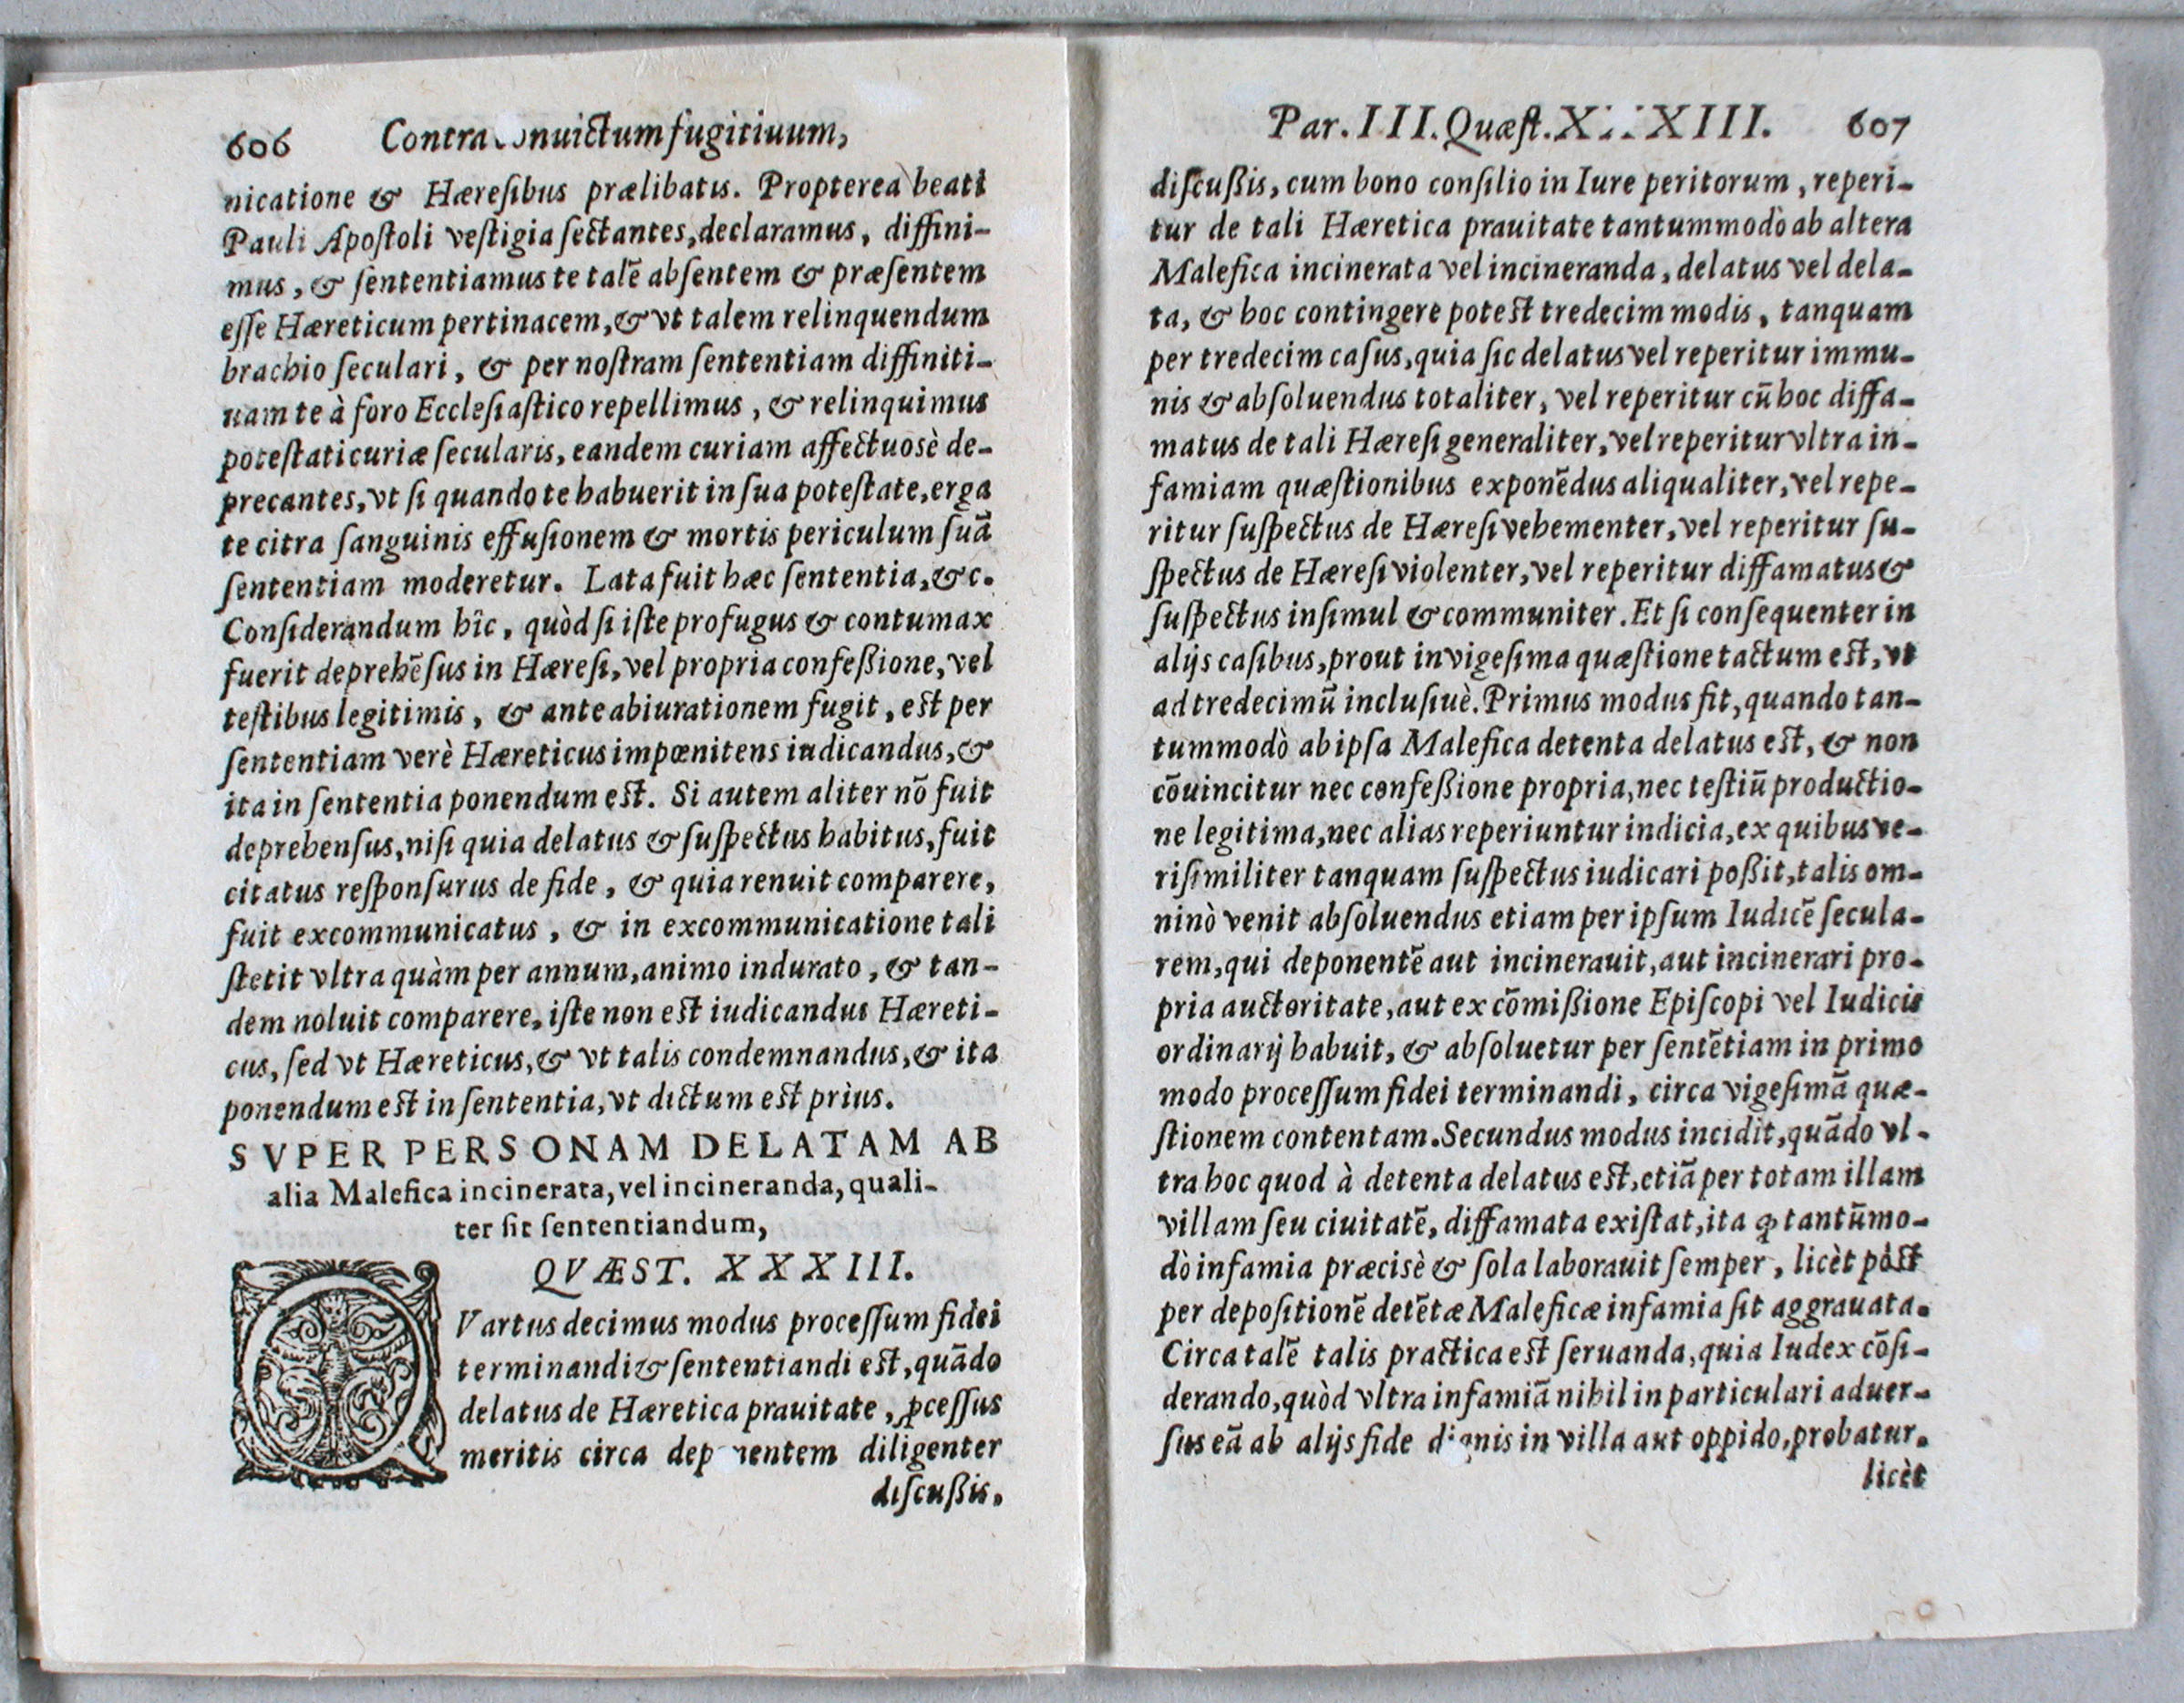 606 Contra nuictum fugitiuum,
nicatione & Hæreſibus prælibatis. Propterea beati
Pauli Apoſtoli veſtigia ſectantes, declaramus, diffini-
mus, & ſententiamus te talē abſentem & præſentem
eſſe Hæreticum pertinacem, & vt talem relinquendum
brachio ſeculari, & per noſtram ſententiam diffiniti-
uam te à foro Eccleſiaſtico repellimus, & relinquimus
poteſtati curiæ ſecularis, eandem curiam affectuosè de-
precantes, vt ſi quando te habuerit in ſua poteſtate, erga
te citra ſanguinis effuſionem & mortis periculum ſuā
ſententiam moderetur. Lata fuit hæc ſententia, &c.
Conſiderandum hîc, quòd ſi iſte profugus & contumax
fuerit deprehēſus in Hæreſi, vel propria confeßione, vel
teſtibus legitimis, & ante abiurationem fugit, eſt per
ſententiam verè Hæreticus impœnitens iudicandus, &
ita in ſententia ponendum eſt. Si autem aliter nō fuit
deprehenſus, niſi quia delatus & ſuſpectus habitus, fuit
citatus reſponſurus de fide, & quia renuit comparere,
fuit excommunicatus, & in excommunicatione tali
ſtetit vltra quàm per annum, animo indurato, & tan-
dem noluit comparere, iſte non eſt iudicandus Hæreti-
cus, ſed vt Hæreticus, & vt talis condemnandus, & ita
ponendum eſt in ſententia, vt dictum eſt priùs.
SVPER PERSONAM DELATAM AB
alia Malefica incinerata, vel incineranda, quali-
ter ſit ſententiandum,
QVÆST. XXXIII.
QVartus decimus modus proceſſum fidei
terminandi & ſententiandi eſt, quādo
delatus de Hæretica prauitate, ꝓceſſus
meritis circa dep nentem diligenter
diſcußis,
Par. III. Quæſt. X XIII. 607
diſcußis, cum bono conſilio in Iure peritorum, reperi-
tur de tali Hæretica prauitate tantummodò ab altera
Malefica incinerata vel incineranda, delatus vel dela-
ta, & hoc contingere poteſt tredecim modis, tanquam
per tredecim caſus, quia ſic delatus vel reperitur immu-
nis & abſoluendus totaliter, vel reperitur cū hoc diffa-
matus de tali Hæreſi generaliter, vel reperitur vltra in-
famiam quæſtionibus exponēdus aliqualiter, vel repe-
ritur ſuſpectus de Hæreſi vehementer, vel reperitur ſu-
ſpectus de Hæreſi violenter, vel reperitur diffamatus &
ſuſpectus inſimul & communiter. Et ſi conſequenter in
alijs caſibus, prout in vigeſima quæſtione tactum eſt, vt
ad tredecimū incluſiuè. Primus modus fit, quando tan-
tummodò ab ipſa Malefica detenta delatus eſt, & non
cōuincitur nec confeßione propria, nec teſtiū productio-
ne legitima, nec alias reperiuntur indicia, ex quibus ve-
riſimiliter tanquam ſuſpectus iudicari poßit, talis om-
ninò venit abſoluendus etiam per ipſum Iudicē ſecula-
rem, qui deponentē aut incinerauit, aut incinerari pro-
pria auctoritate, aut ex cōmißione Epiſcopi vel Iudicis
ordinarij habuit, & abſoluetur per ſentētiam in primo
modo proceſſum fidei terminandi, circa vigeſimā quæ-
ſtionem contentam. Secundus modus incidit, quādo vl-
tra hoc quod à detenta delatus eſt, etiā per totam illam
villam ſeu ciuitatē, diffamata exiſtat, ita ꝙ tantūmo-
dò infamia præcisè & ſola laborauit ſemper, licèt pòſt
per depoſitionē detētæ Maleficæ infamia ſit aggrauata.
Circa talē talis practica eſt ſeruanda, quia Iudex cōſi-
derando, quòd vltra infamiā nihil in particulari aduer-
ſus eā ab alijs fide dignis in villa aut oppido, probatur,
licèt